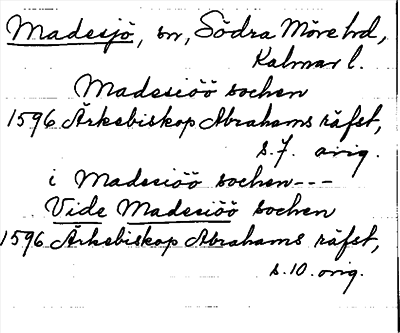 Madesjö, sn, Södra Möre hd,
Kalmar l.
Madesiöö sochen
1596 Ärkebiskop Abrahams räfst,
s. 7. orig.
i Madesiöö sochen---
Vide Madesiöö sochen
1596 Ärkebiskop Abrahams räfst,
s. 10. orig.